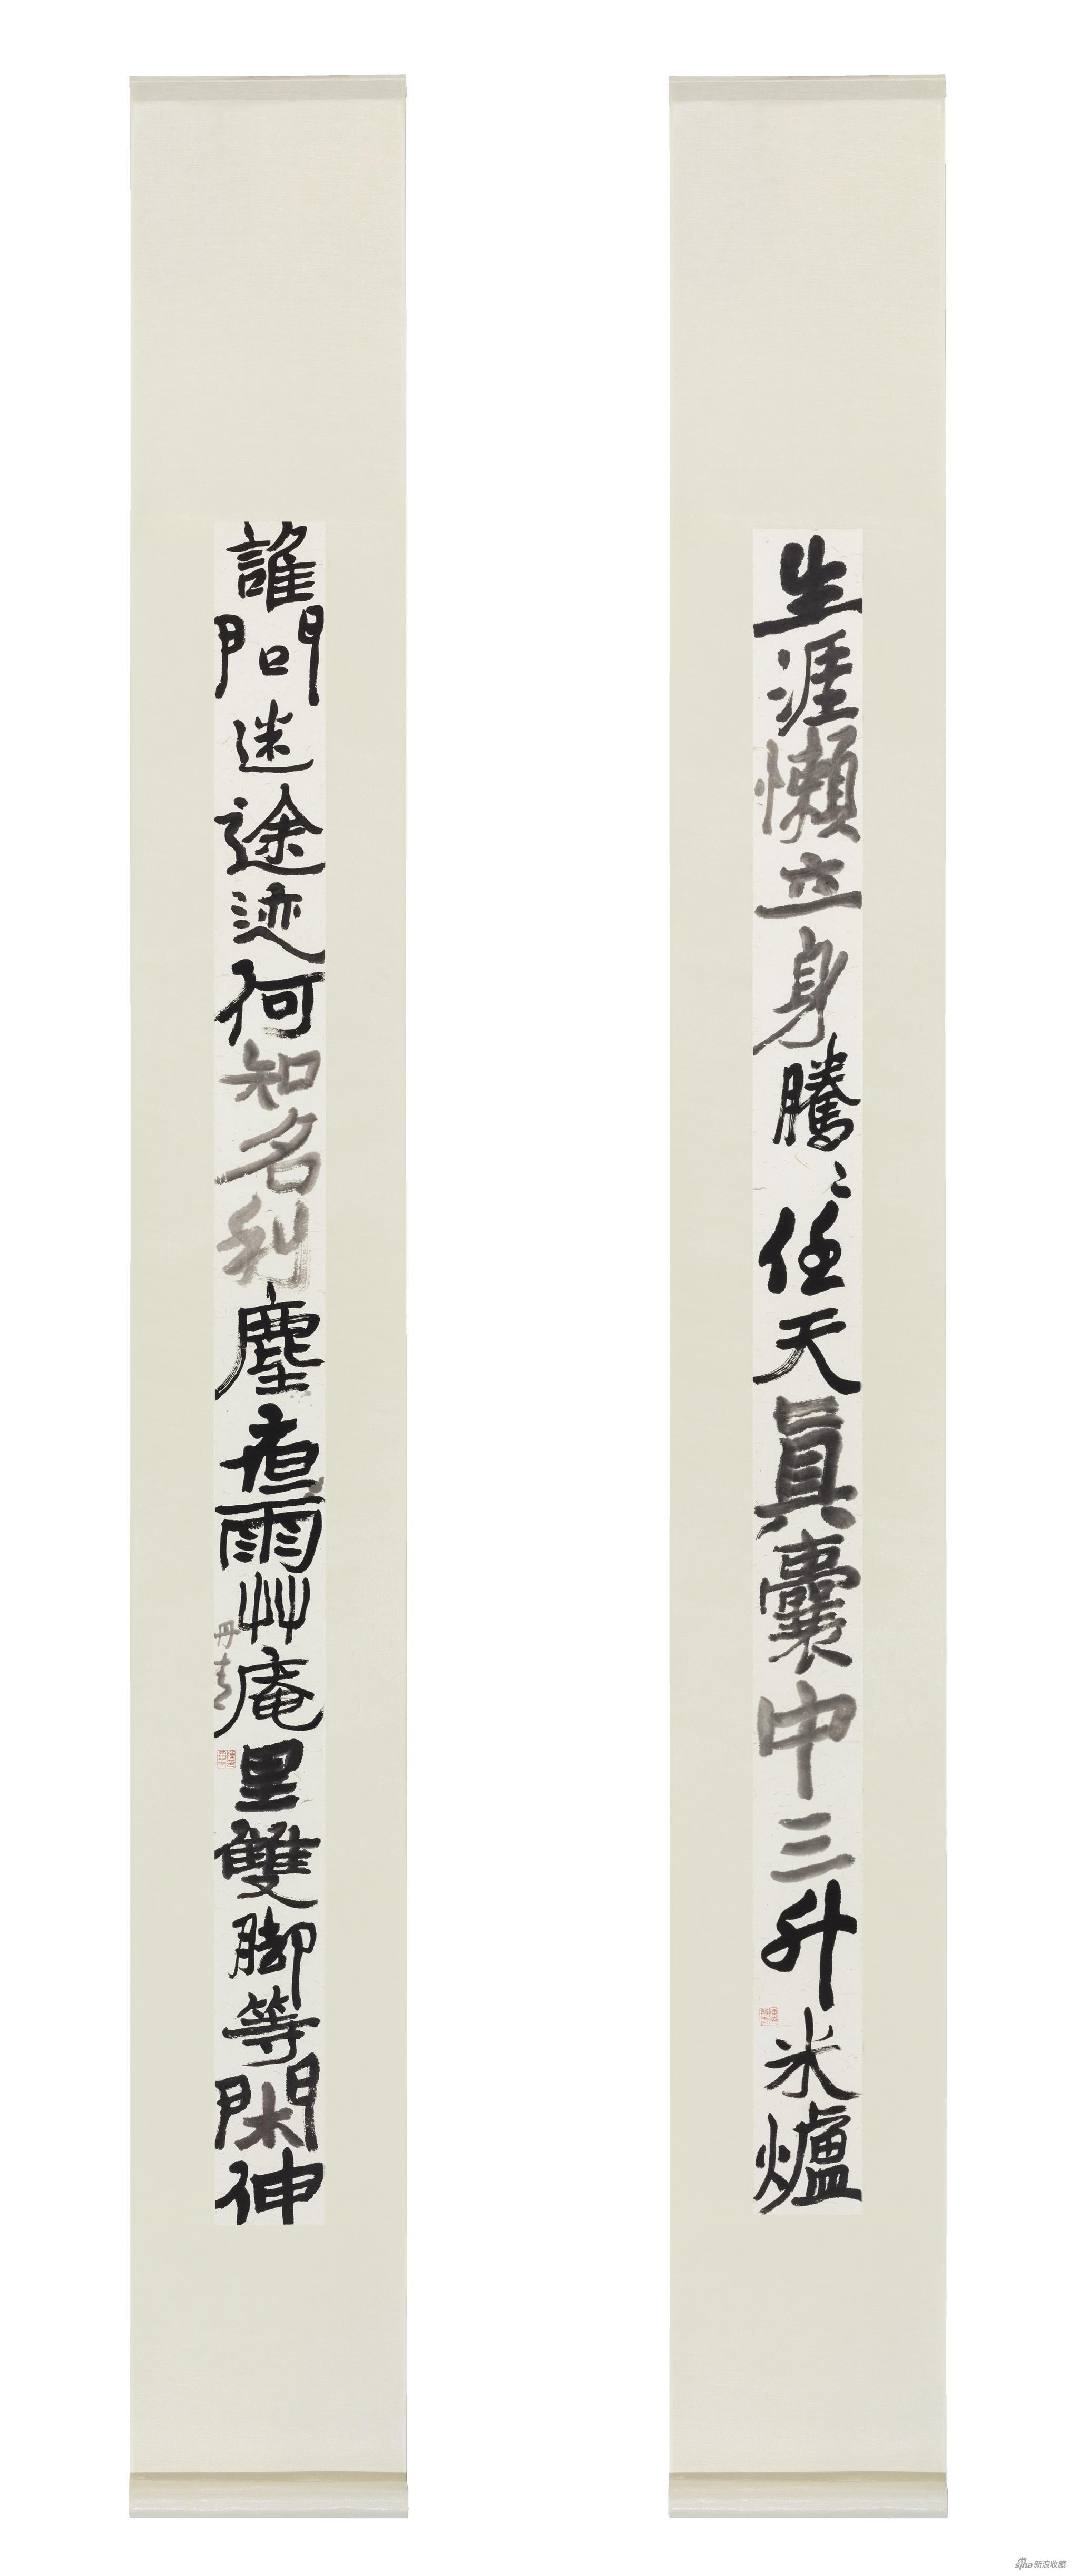 生涯懶立身騰〻任天眞囊中三升米爐
誰問迷途迹何知名利塵夜雨艸庵里雙脚等閑伸
丹青
sina 新浪收藏